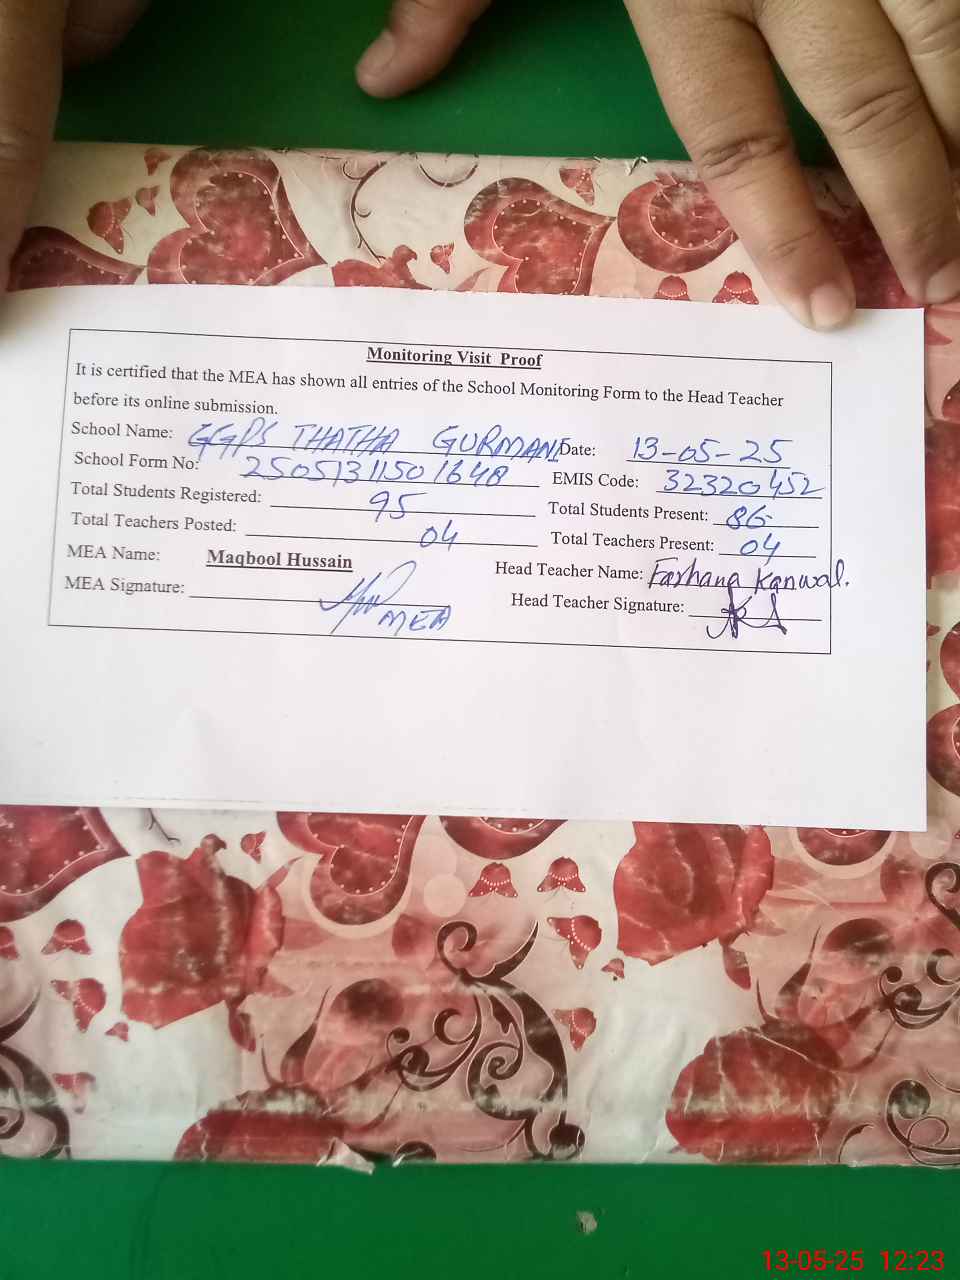 Monitoring Visit Proof
It is certified that the MEA has shown all entries of the School Monitoring Form to the Head Teacher
before its online submission.
School Name: GGPS THATHA GURMANI Date: 13-05-25
School Form No: 25051311501648 EMIS Code: 32320452
Total Students Registered: 95 Total Students Present: 86
Total Teachers Posted: 04 Total Teachers Present: 04
MEA Name: Maqbool Hussain Head Teacher Name: Farhana Kanwal.
MEA Signature: MEA Head Teacher Signature:
13-05-25 12:23